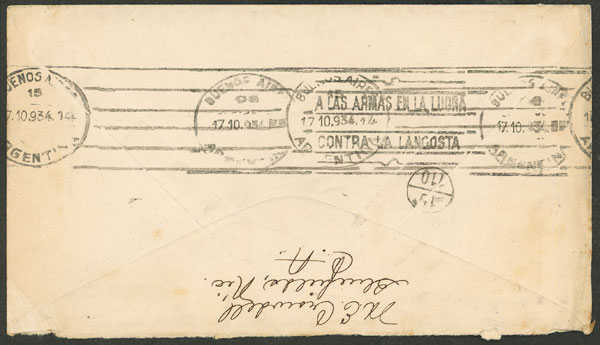 BUENOS A
15
17.10.934.14
ARGENTINA
BUENOS AIRE
17.10.934
BUENOS AIRES
17.10.934.14
A LAS ARMAS EN LA LUCHA
CONTRA LA LANGOSTA
17.10.934
ARGENTINA
15
110
Bluefields, Nic.
C. A.